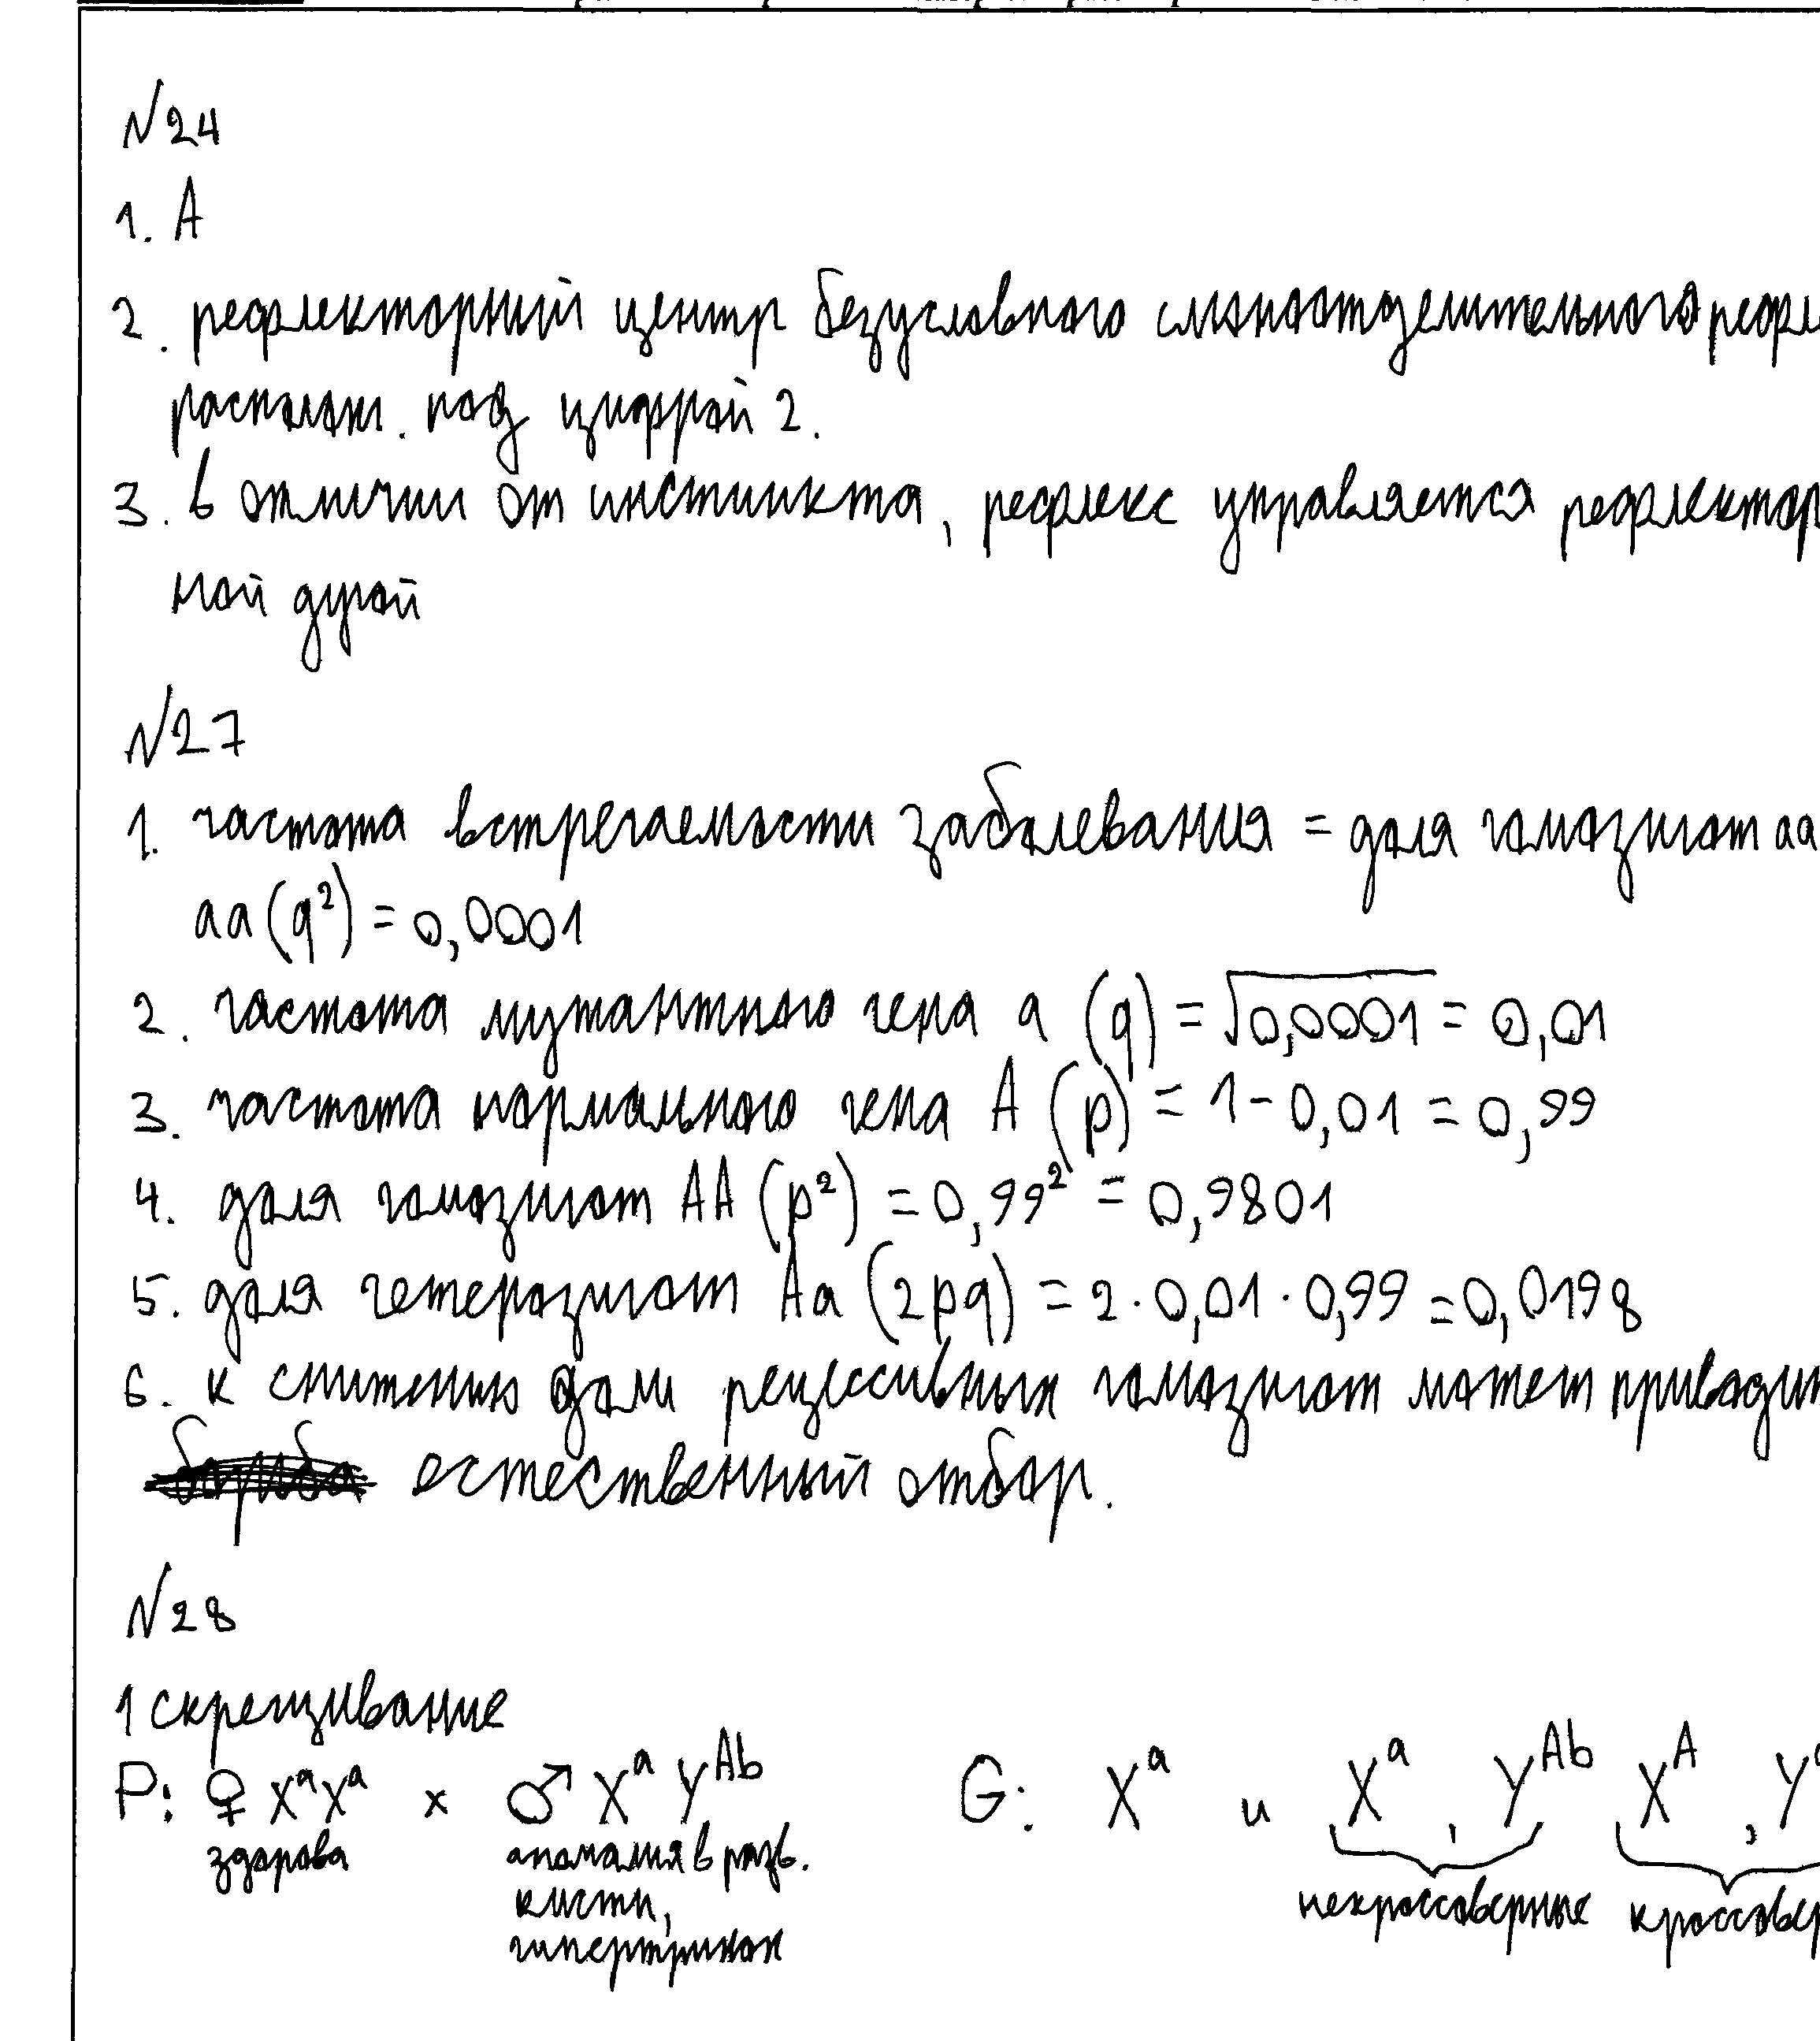 №24
1. А
2. рефлекторный центр безусловного слюноотделительного рефл
располож. под цифрой 2.
3. в отличии от инстинкта, рефлекс управляется рефлектор
ной дугой
№27
1. частота встречаемости заболевания = доля гомозигот aa
aa (q²) = 0,0001
2. частота мутантного гена a (q) = √0,0001 = 0,01
3. частота нормального гена A (p) = 1 - 0,01 = 0,99
4. доля гомозигот AA (p²) = 0,99² = 0,9801
5. доля гетерозигот Aa (2pq) = 2 · 0,01 · 0,99 = 0,0198
6. к снижению доли рецессивных гомозигот может приводит
естественный отбор.
№28
1 скрещивание
P: ♀ XᵃXᵃ × ♂ Xᵃ Yᴬᵇ G: Xᵃ и Xᵃ , Yᴬᵇ Xᴬ , Y
здорова аномалия в разв. кисти, гипертрихоз
некроссоверные кроссовер